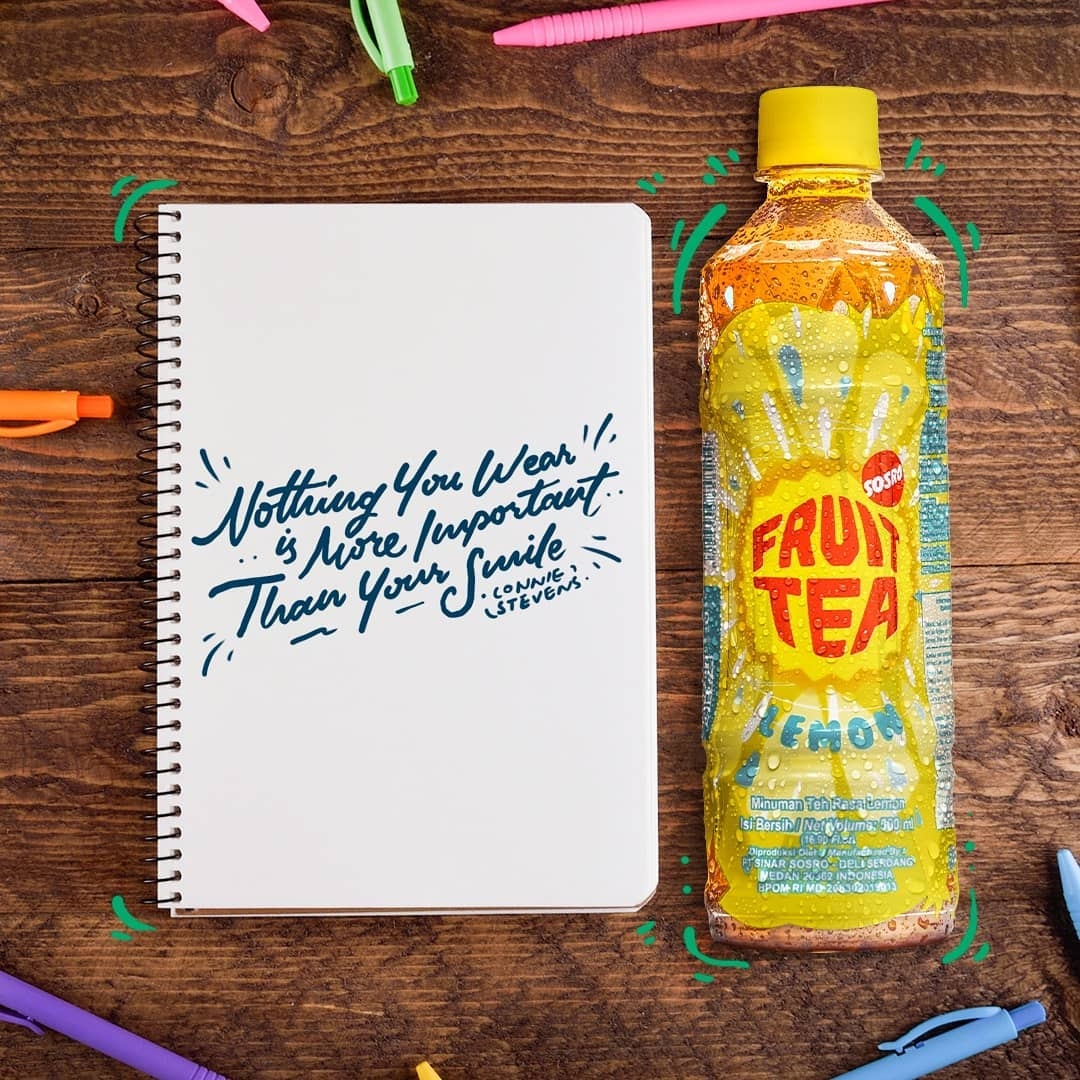 Nothing You Wear
is More Important
Than Your Smile
CONNIE
STEVENS
SOSRO
FRUIT
TEA
LEMON
Minuman Teh Rasa Lemon
Isi Bersih / Net Volume: 500 ml
(16.90 Fl.oz)
Diproduksi Oleh / Manufactured By :
PT SINAR SOSRO - DELI SERDANG
MEDAN 20362 INDONESIA